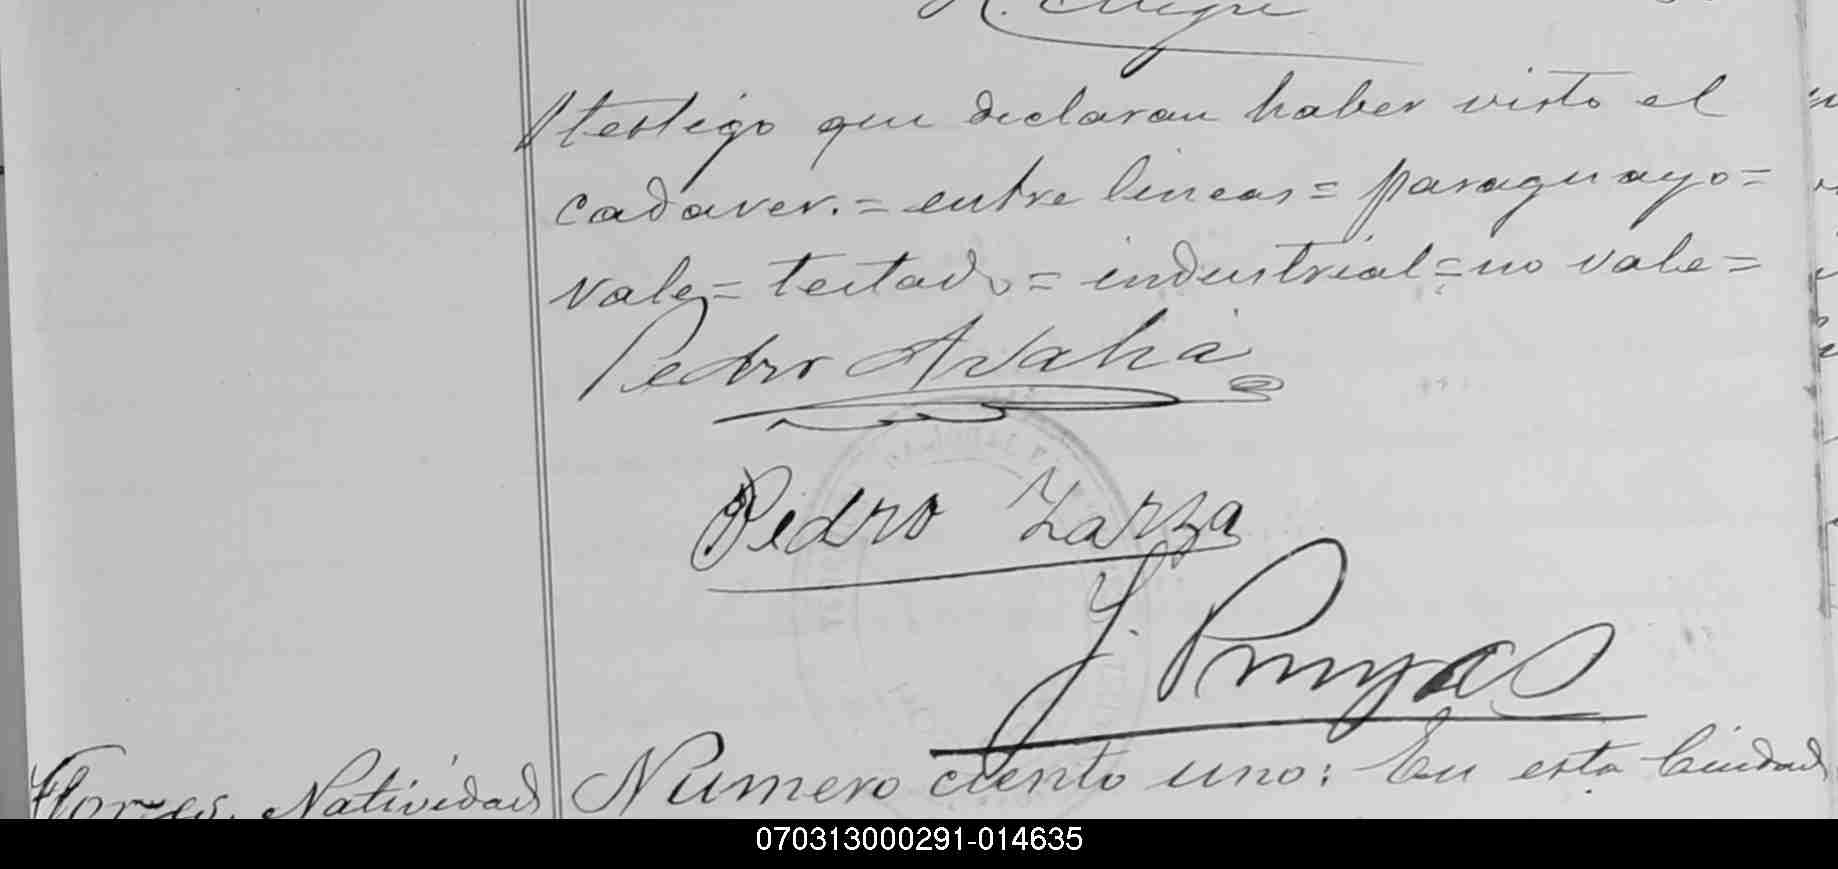 testigo que declaran haber visto el
cadaver.=entre lineas=paraguayo=
vale=testado=industrial=no vale=
Pedro
Pedro Zarza
Flores, Natividad Numero ciento uno: En esta Ciudad
070313000291-014635